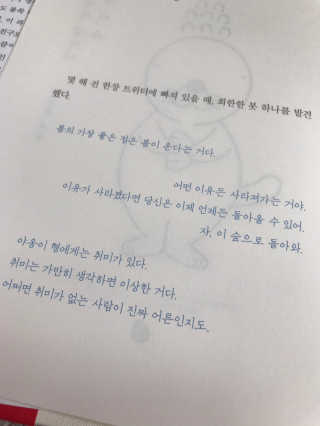 몇 해 전 한창 트위터에 빠져 있을 때, 희한한 봇 하나를 발견
했다.
봄의 가장 좋은 점은 봄이 온다는 거다.
어떤 이유든 사라져가는 거야.
이유가 사라졌다면 당신은 이제 언제든 돌아올 수 있어.
자, 이 숲으로 돌아와.
야옹이 형에게는 취미가 있다.
취미는 가만히 생각하면 이상한 거다.
어쩌면 취미가 없는 사람이 진짜 어른인지도.